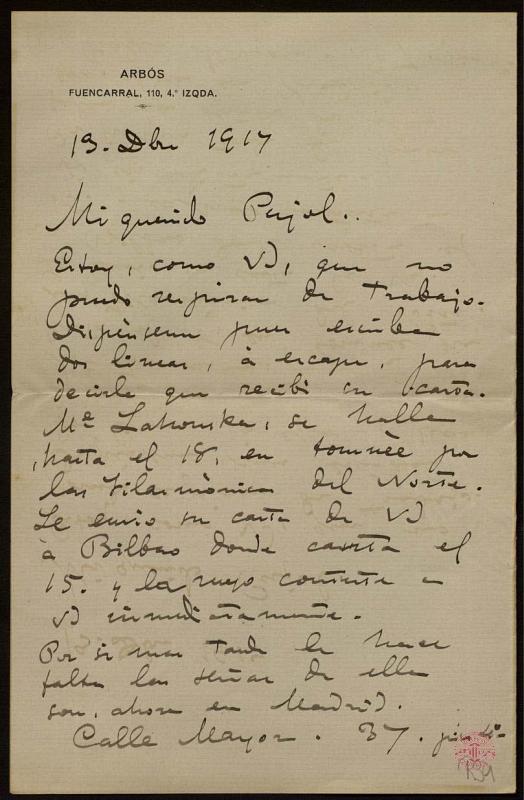 ARBÓS
FUENCARRAL, 110, 4.° IZQDA.
13. Dbre 1917
Mi querido Pujol..
Estoy, como Vd, que no
puedo respirar de trabajo.
Dispénseme pues escriba
dos lineas, à escape, para
decirle que recibi su carta.
Me Lahowska, se halla
hasta el 18, en tournèe por
las Filarmònicas del Norte.
Le envio su carta de Vd
à Bilbao donde canta el
15. y la ruego conteste a
Vd inmediatamente.
Por si mas tarde le hace
falta las señas de ella
son, ahora en Madrid.
Calle Mayor. 37.